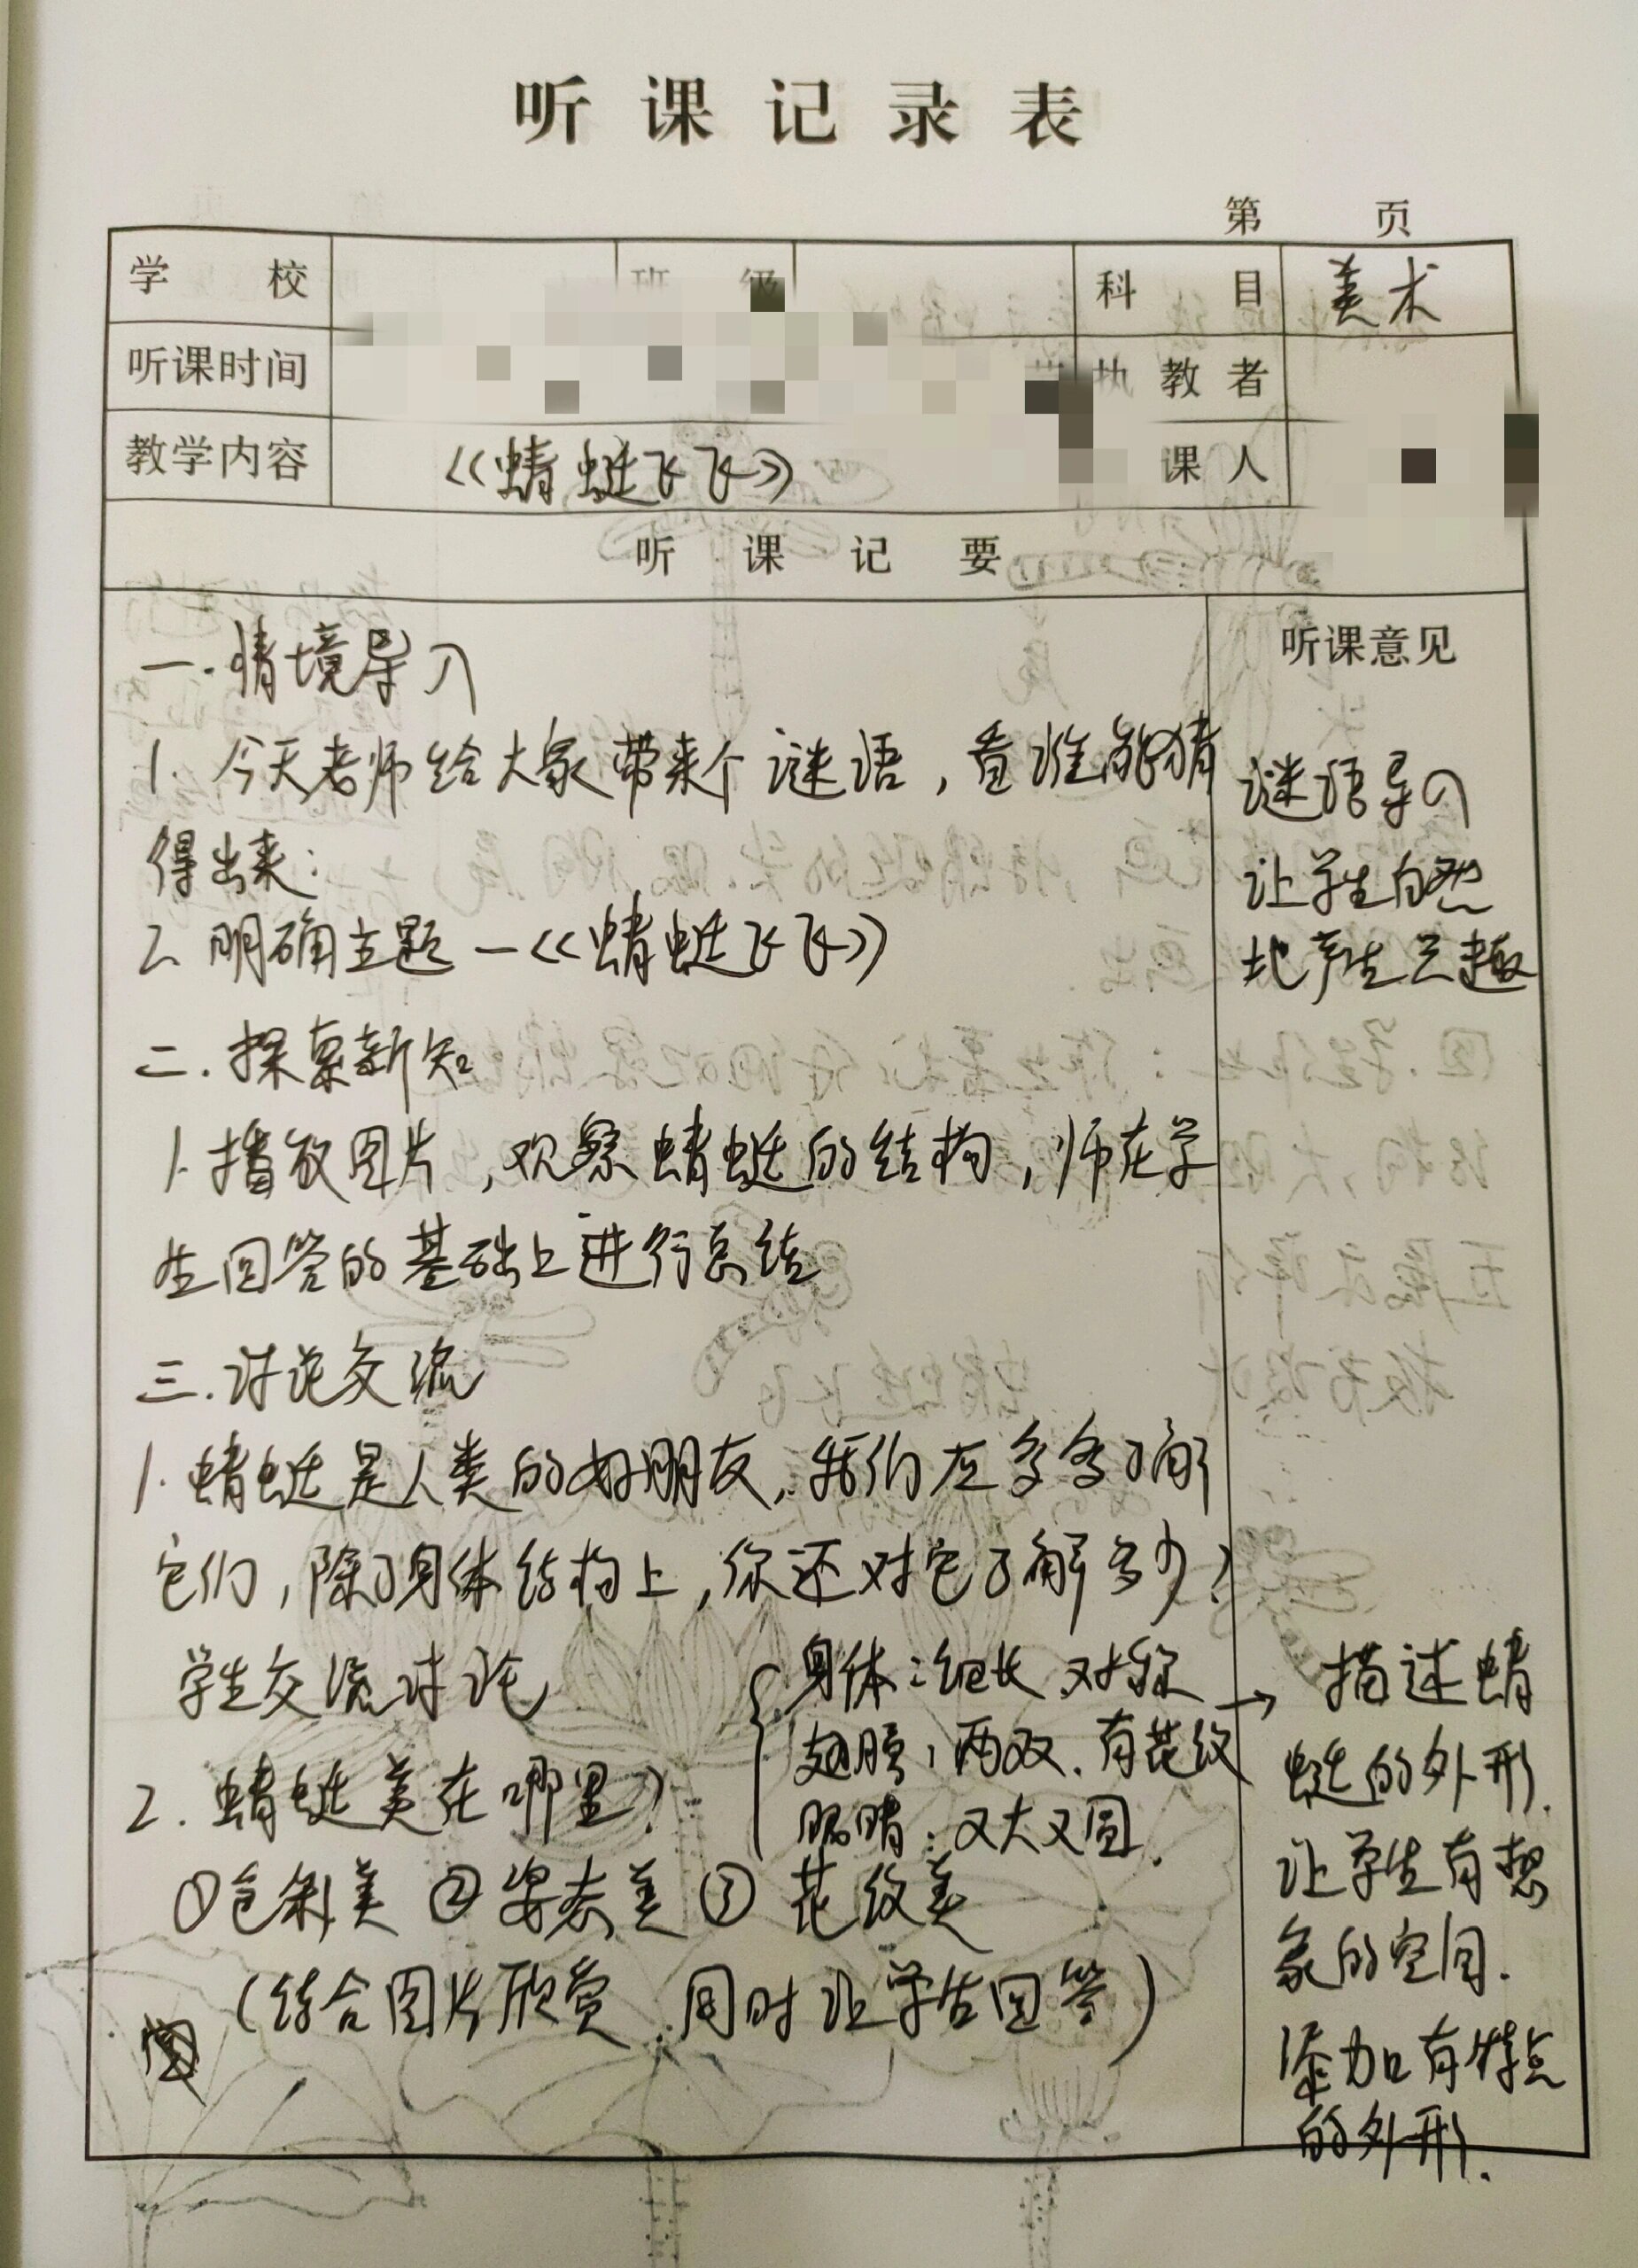 听课记录表
第 页
学 校 班 级 科 目 美术
听课时间 执教者
教学内容 《蜻蜓飞飞》 课人
听 课 记 要
听课意见
一.情境导入
1. 今天老师给大家带来个谜语，看谁能猜
得出来：
2. 明确主题—《蜻蜓飞飞》
二.探索新知
1.播放图片，观察蜻蜓的结构，师在学
生回答的基础上进行总结
三.讨论交流
1.蜻蜓是人类的好朋友，我们应多多了解
它们，除了身体结构上，你还对它了解多少？
学生交流讨论
2.蜻蜓美在哪里？
身体：细长、对称
翅膀：两双、有花纹
眼睛：又大又圆.
①色彩美 ②姿态美 ③花纹美
（结合图片欣赏，同时让学生回答）
谜语导入
让学生自然
地产生兴趣
→ 描述蜻
蜓的外形.
让学生有想
象的空间.
添加有特点
的外形.